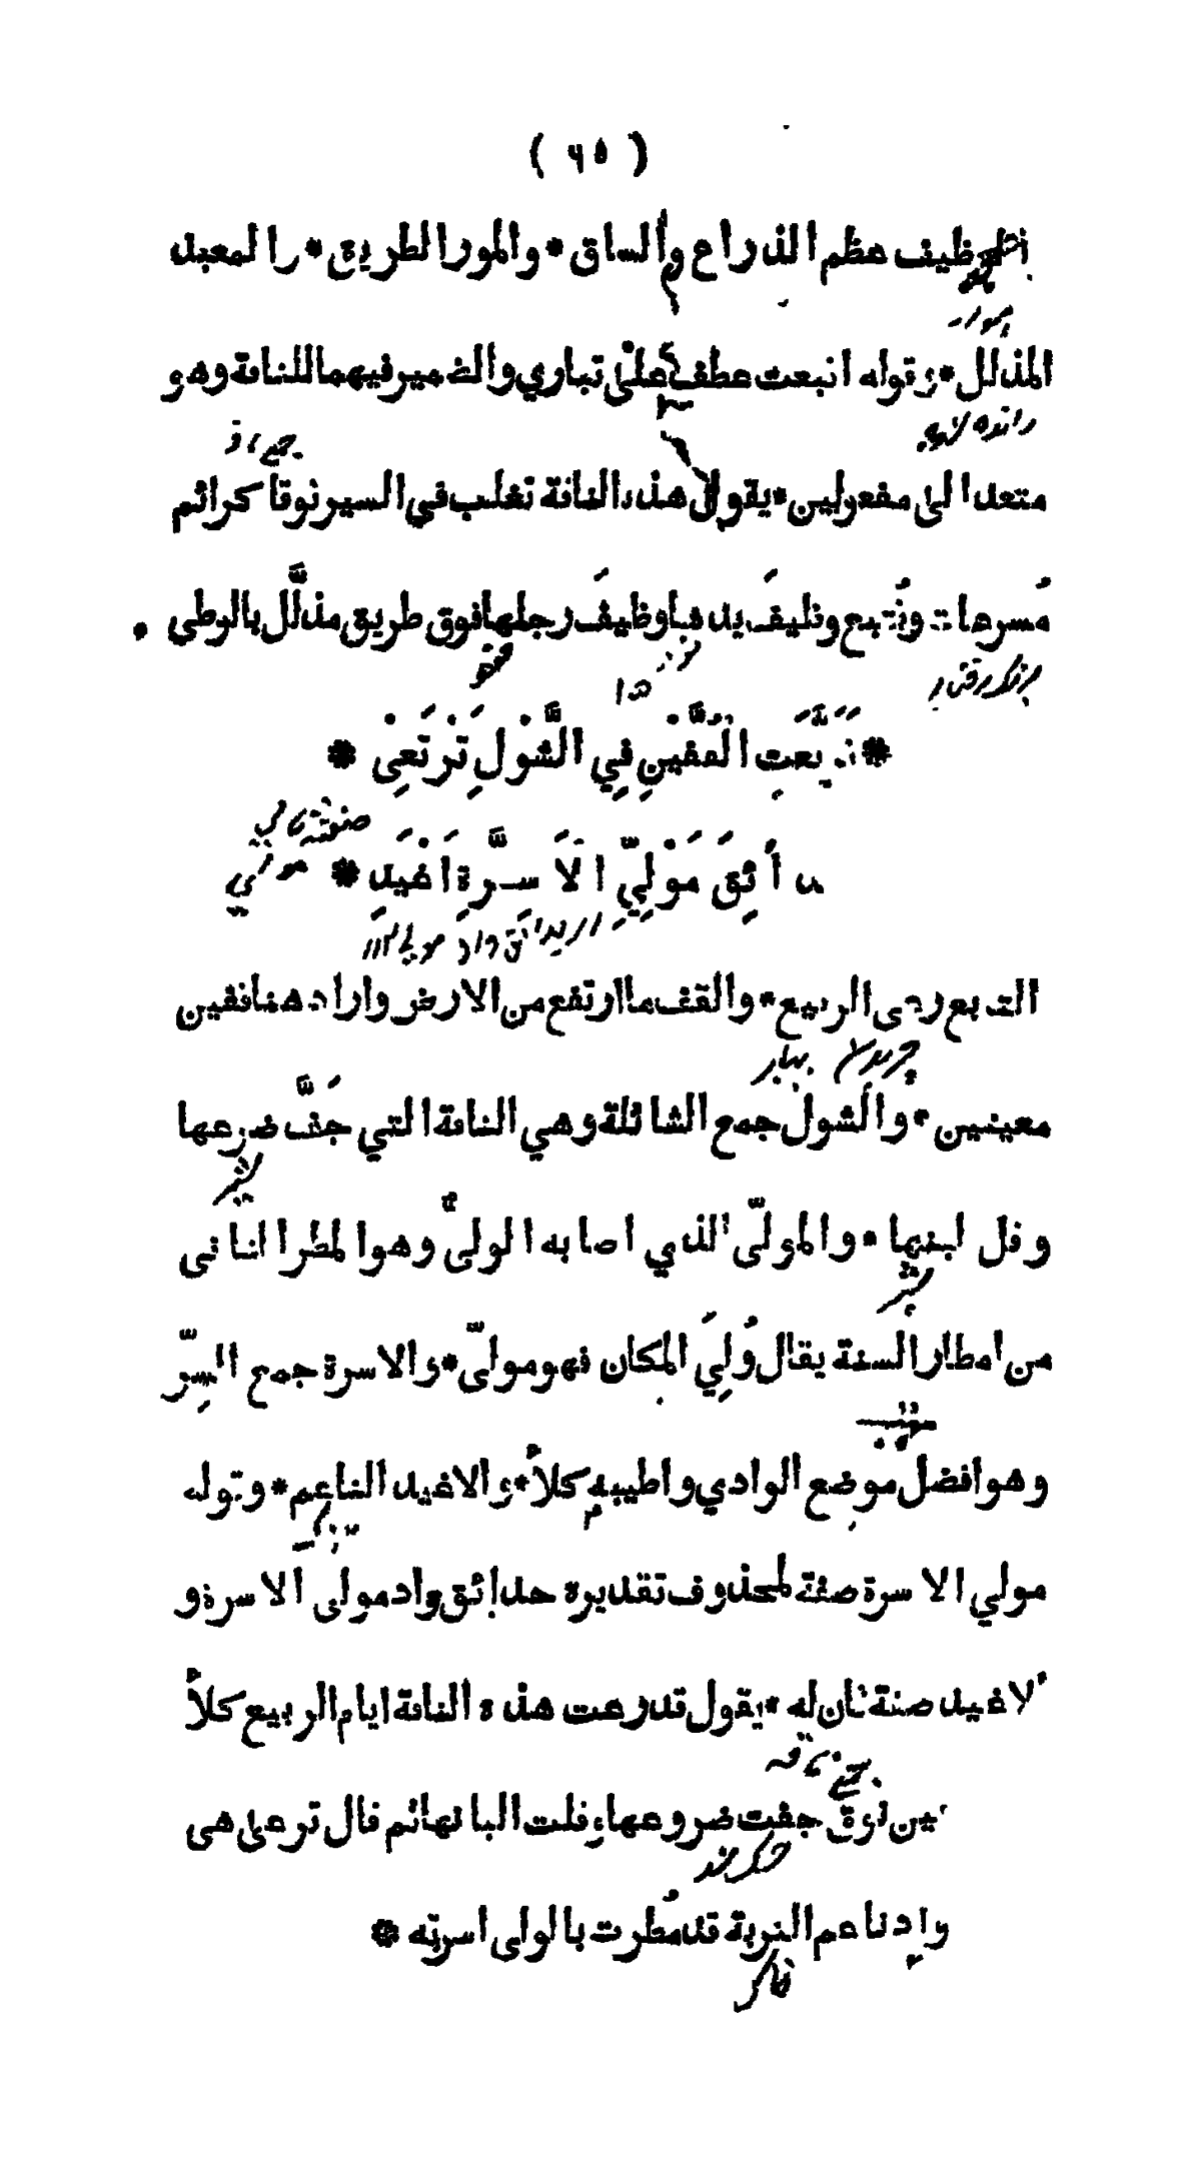 ( ٦٥ )
الوظيف عظم الذراع والساق * والمور الطريق * والمعبد
المذلل * وقوله اتبعت عطف على تباري والضمير فيهما للناقة وهو
متعد الى مفعولين * يقول هذه الناقة تغلب في السير نوقا كرائم
مُسرعات وتُتبع وظيفَ يدها وظيفَ رجلها فوق طريق مذلَّل بالوطي *
* تَرَبَّعَتِ الْقُفَّيْنِ فِي الشَّوْلِ تَرْتَعِيْ *
حدائِقَ مَوْلِيِّ الاَسِرَّةِ اَغْيَدِ *
التربع رعى الربيع * والقف ما ارتفع من الارض واراد هنا قفين
معينين * والشول جمع الشائلة وهي الناقة التي جَفَّ ضرعها
وقل لبنها * والمولىّ الذي اصابه الولىُّ وهو المطر الثاني
من امطار السنة يقال وُلِيَ المكان فهو مولىّ * والاسرة جمع السِرّ
وهو افضل موضع الوادي واطيبه كلأً * والاغيد الناعم * وقوله
مولي الاسرة صفة لمحذوف تقديره حدائق واد مولى الاسرة و
الاغيد صفة ثان له * يقول قد رعت هذه الناقة ايام الربيع كلأً
بين نوق جفت ضروعها وقلت البانها ثم قال ترعى هى
واد ناعم التربة قد مُطرت بالولى اسرته *